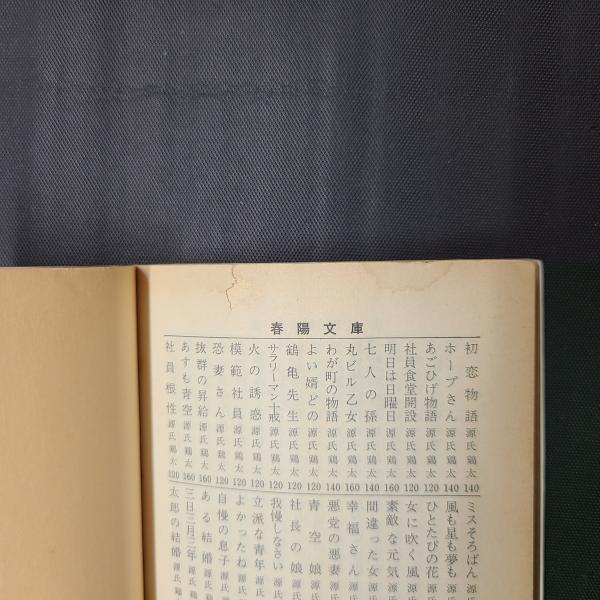 春陽文庫
初恋物語 源氏鶏太 140
ホープさん 源氏鶏太 140
あごひげ物語 源氏鶏太 120
社員食堂開設 源氏鶏太 120
明日は日曜日 源氏鶏太 160
七人の孫 源氏鶏太 140
丸ビル乙女 源氏鶏太 160
わが町の物語 源氏鶏太 140
よい婿どの 源氏鶏太 120
鶴亀先生 源氏鶏太 120
サラリーマン十戒 源氏鶏太 120
火の誘惑 源氏鶏太 120
模範社員 源氏鶏太 120
恐妻さん 源氏鶏太 120
抜群の昇給 源氏鶏太 160
あすも青空 源氏鶏太 160
社員根性 源氏鶏太 120
ミスそろばん 源氏
風も星も夢も 源氏
ひとたびの花 源氏
女に吹く風 源氏
素敵な元気 源氏
間違った女 源氏
幸福さん 源氏
悪党の悪妻 源氏
青空娘 源氏
社長の娘 源氏
我慢しなさい 源氏
立派な青年 源氏
よかったね 源氏
自慢の息子 源氏
ある結婚 源氏鶏
三日三月三年 源氏鶏
太郎の結婚 源氏鶏